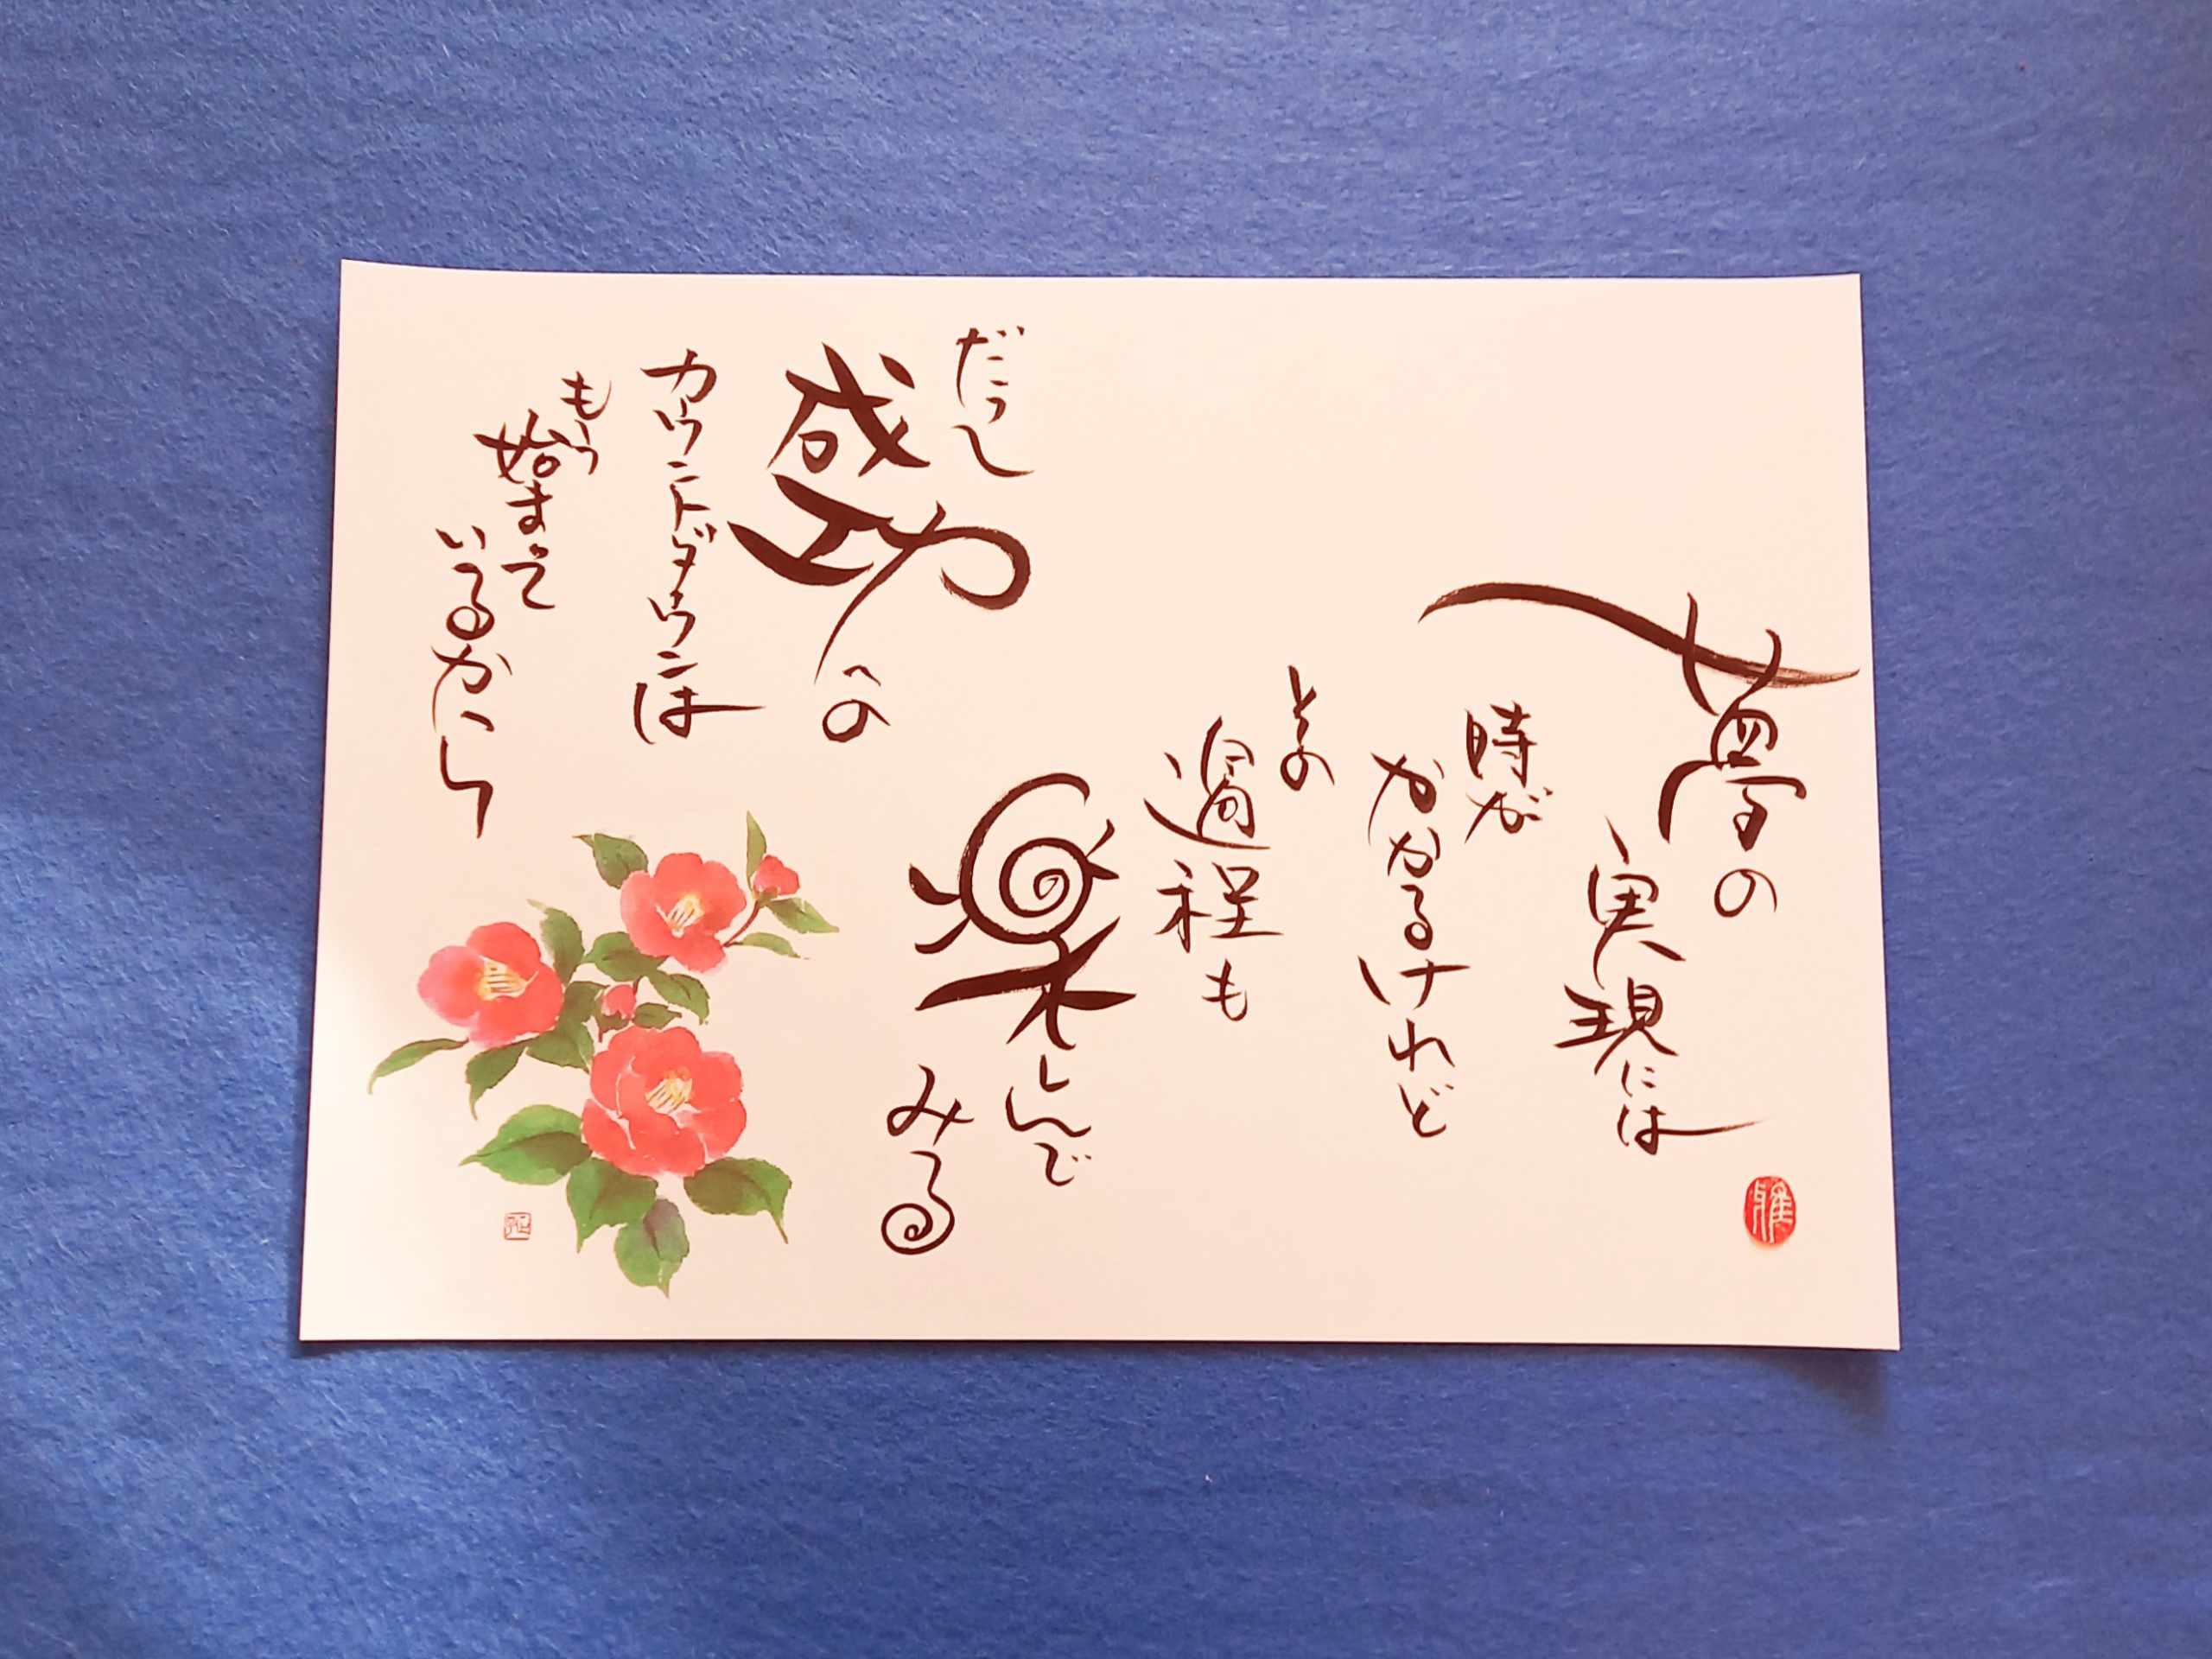 夢の
実現には
時が
かかるけれど
その
過程も
楽しんで
みる
だって
成功への
カウントダウンは
もう
始まって
いるから
雅